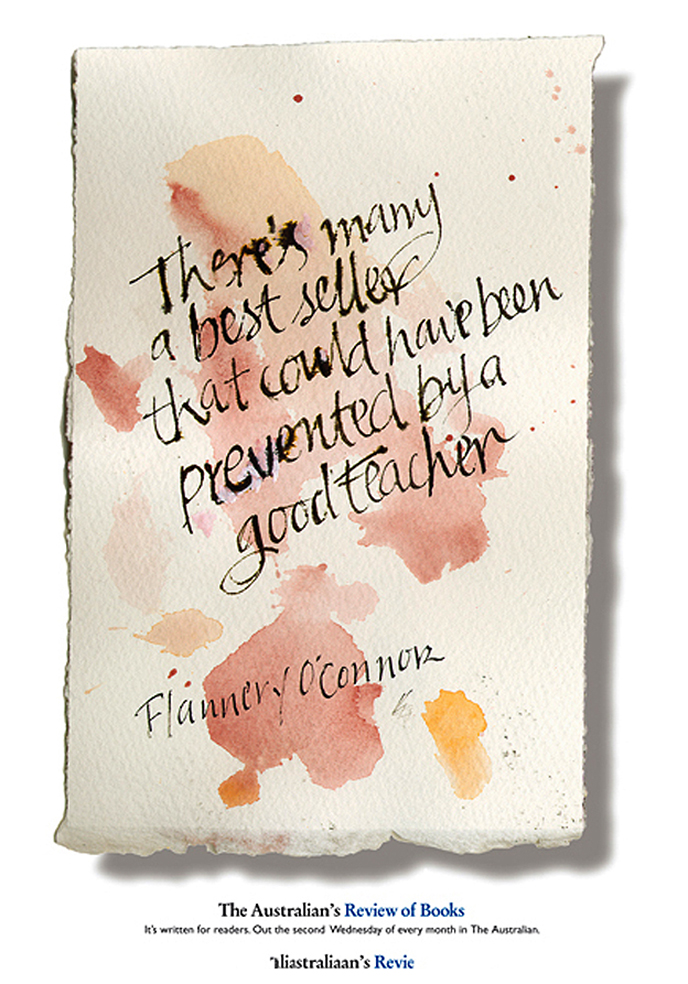 There's many
a best seller
that could have been
prevented by a
good teacher
Flannery O'Connor
The Australian's Review of Books
It's written for readers. Out the second Wednesday of every month in The Australian.